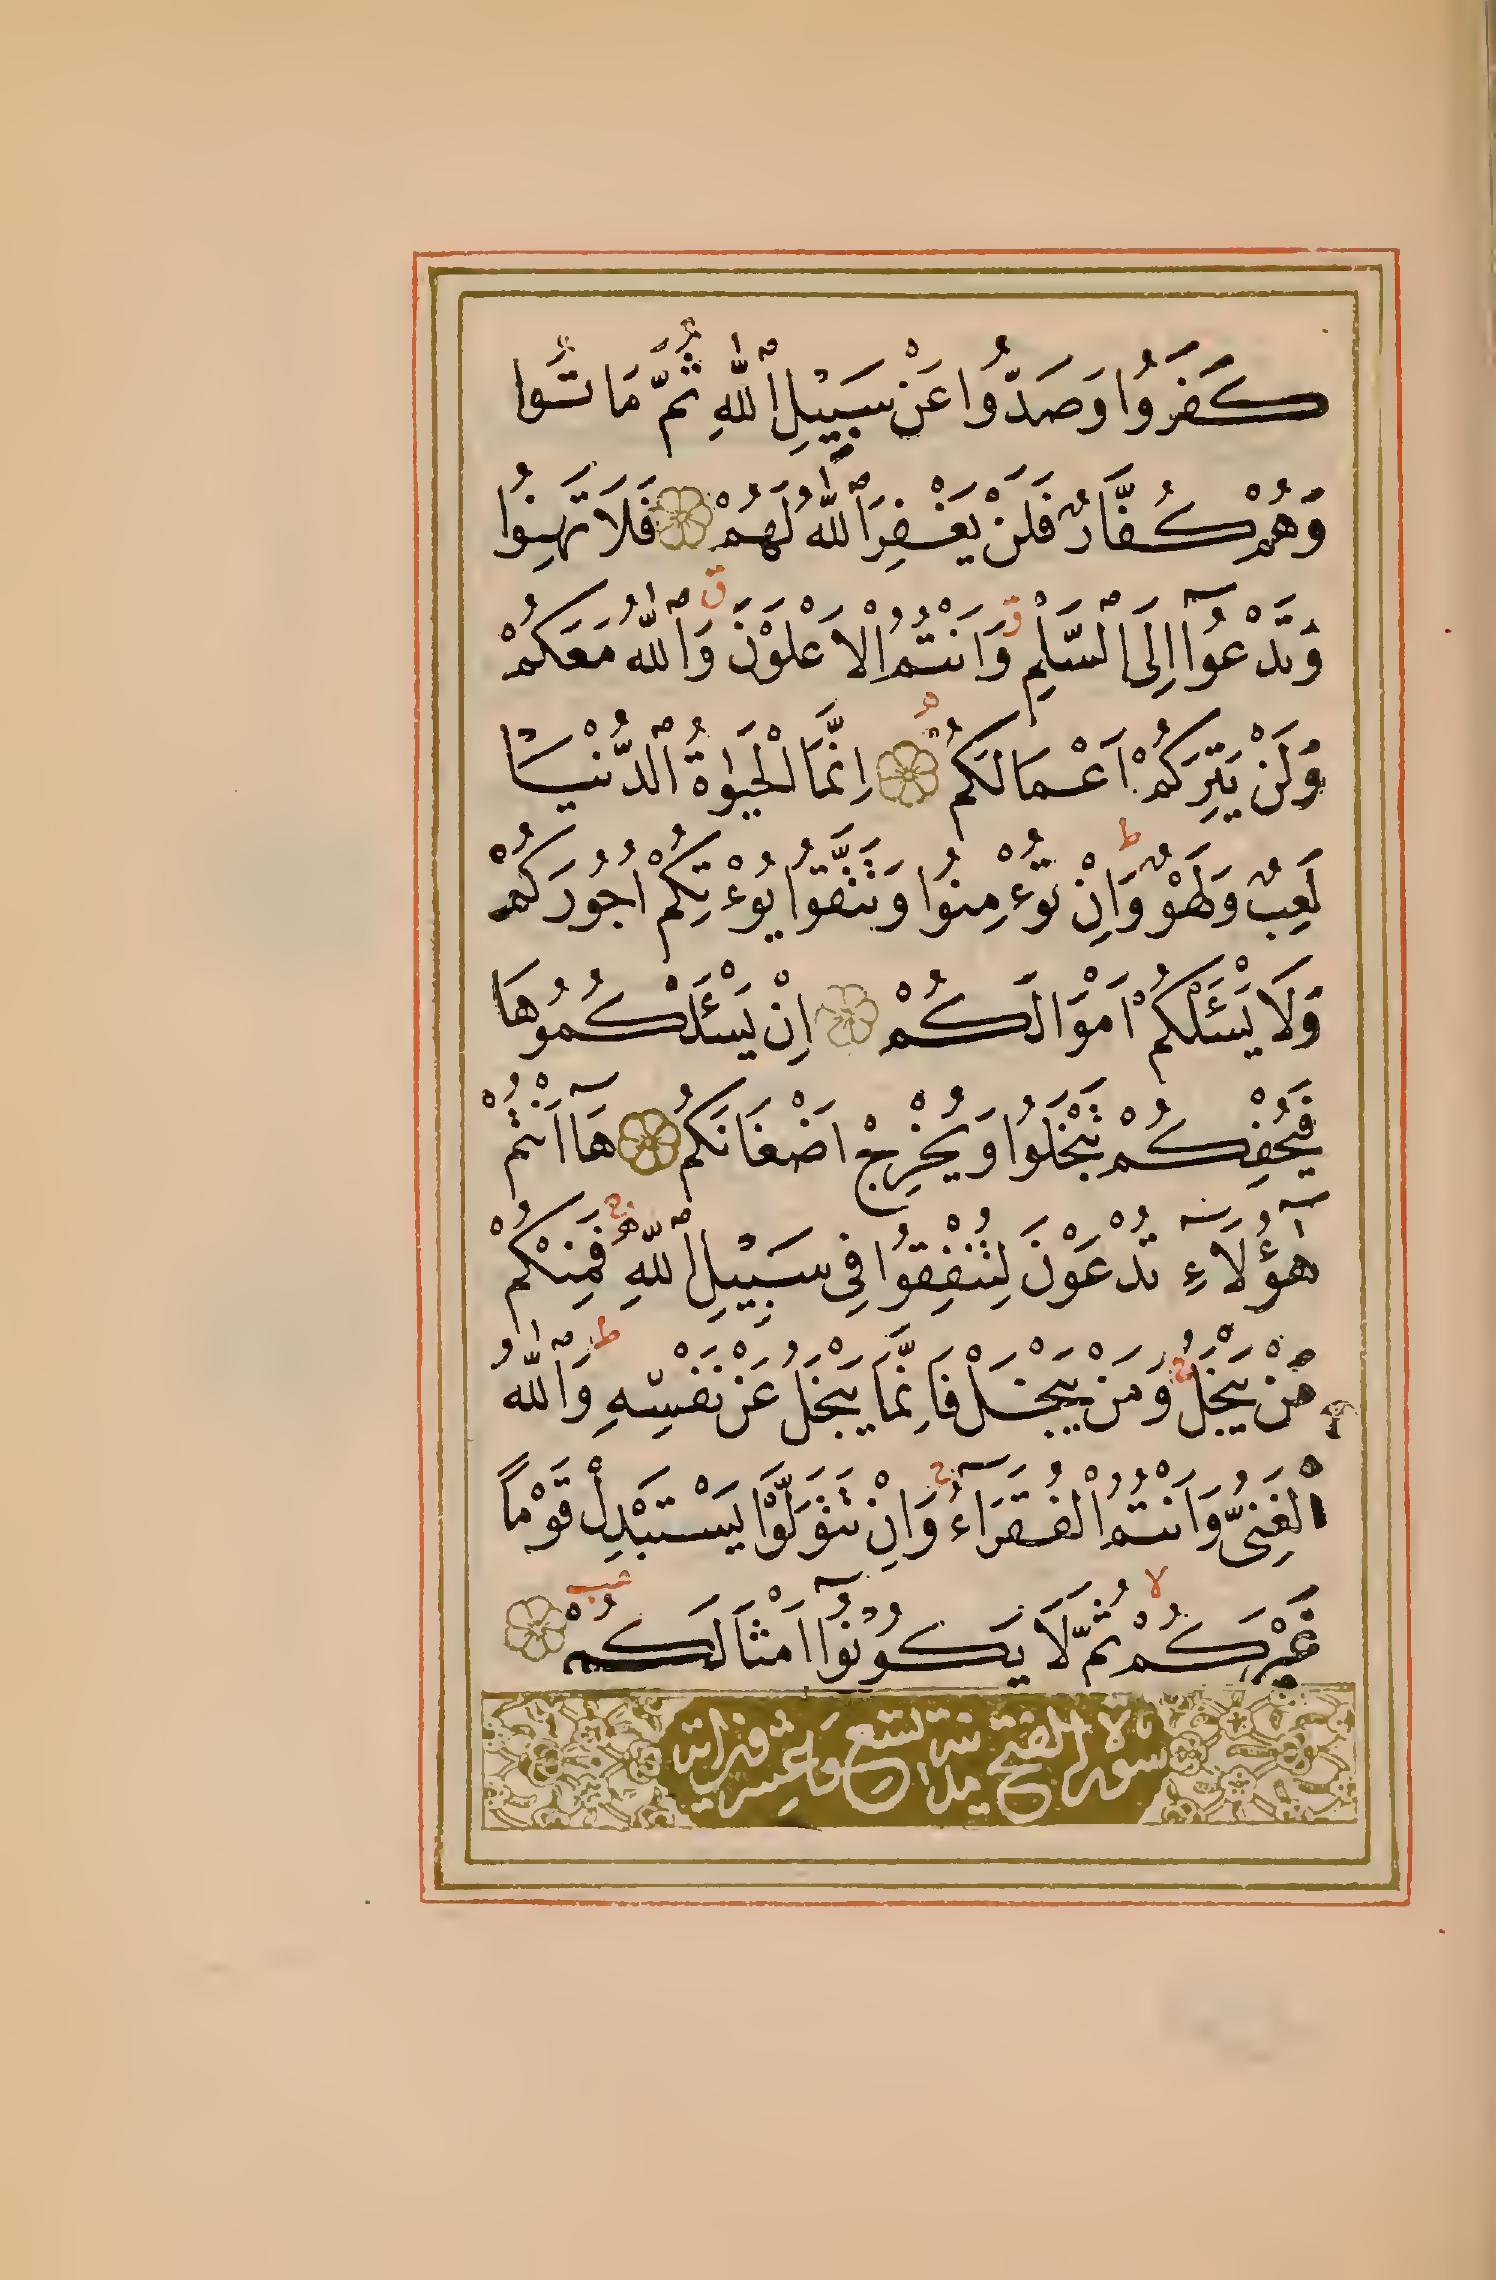 كَفَرُوا وَصَدُّوا عَنْ سَبِيْلِ اللّٰهِ ثُمَّ مَاتُوا
وَهُمْ كُفَّارٌ فَلَنْ يَغْفِرَ اللّٰهُ لَهُمْ ۝ فَلَا تَهِنُوا
وَتَدْعُوٓا اِلَى السَّلْمِ ق وَاَنْتُمُ الْاَعْلَوْنَ ق وَاللّٰهُ مَعَكُمْ
وَلَنْ يَتِرَكُمْ اَعْمَالَكُمْ ۝ اِنَّمَا الْحَيٰوةُ الدُّنْيَا
لَعِبٌ وَلَهْوٌ ط وَاِنْ تُؤْمِنُوا وَتَتَّقُوا يُؤْتِكُمْ اُجُورَكُمْ
وَلَا يَسْـَٔلْكُمْ اَمْوَالَكُمْ ۝ اِنْ يَسْـَٔلْكُمُوهَا
فَيُحْفِكُمْ تَبْخَلُوا وَيُخْرِجْ اَضْغَانَكُمْ ۝ هَآ اَنْتُمْ
هٰٓؤُلَآءِ تُدْعَوْنَ لِتُنْفِقُوا فِى سَبِيْلِ اللّٰهِ ج فَمِنْكُمْ
مَنْ يَبْخَلُ ج وَمَنْ يَبْخَلْ فَاِنَّمَا يَبْخَلُ عَنْ نَفْسِهِ ط وَاللّٰهُ
الْغَنِىُّ وَاَنْتُمُ الْفُقَرَآءُ ج وَاِنْ تَتَوَلَّوْا يَسْتَبْدِلْ قَوْمًا
غَيْرَكُمْ لا ثُمَّ لَا يَكُونُوٓا اَمْثَالَكُمْ ۝
سورة الفتح مدنية تسع وعشرون اية